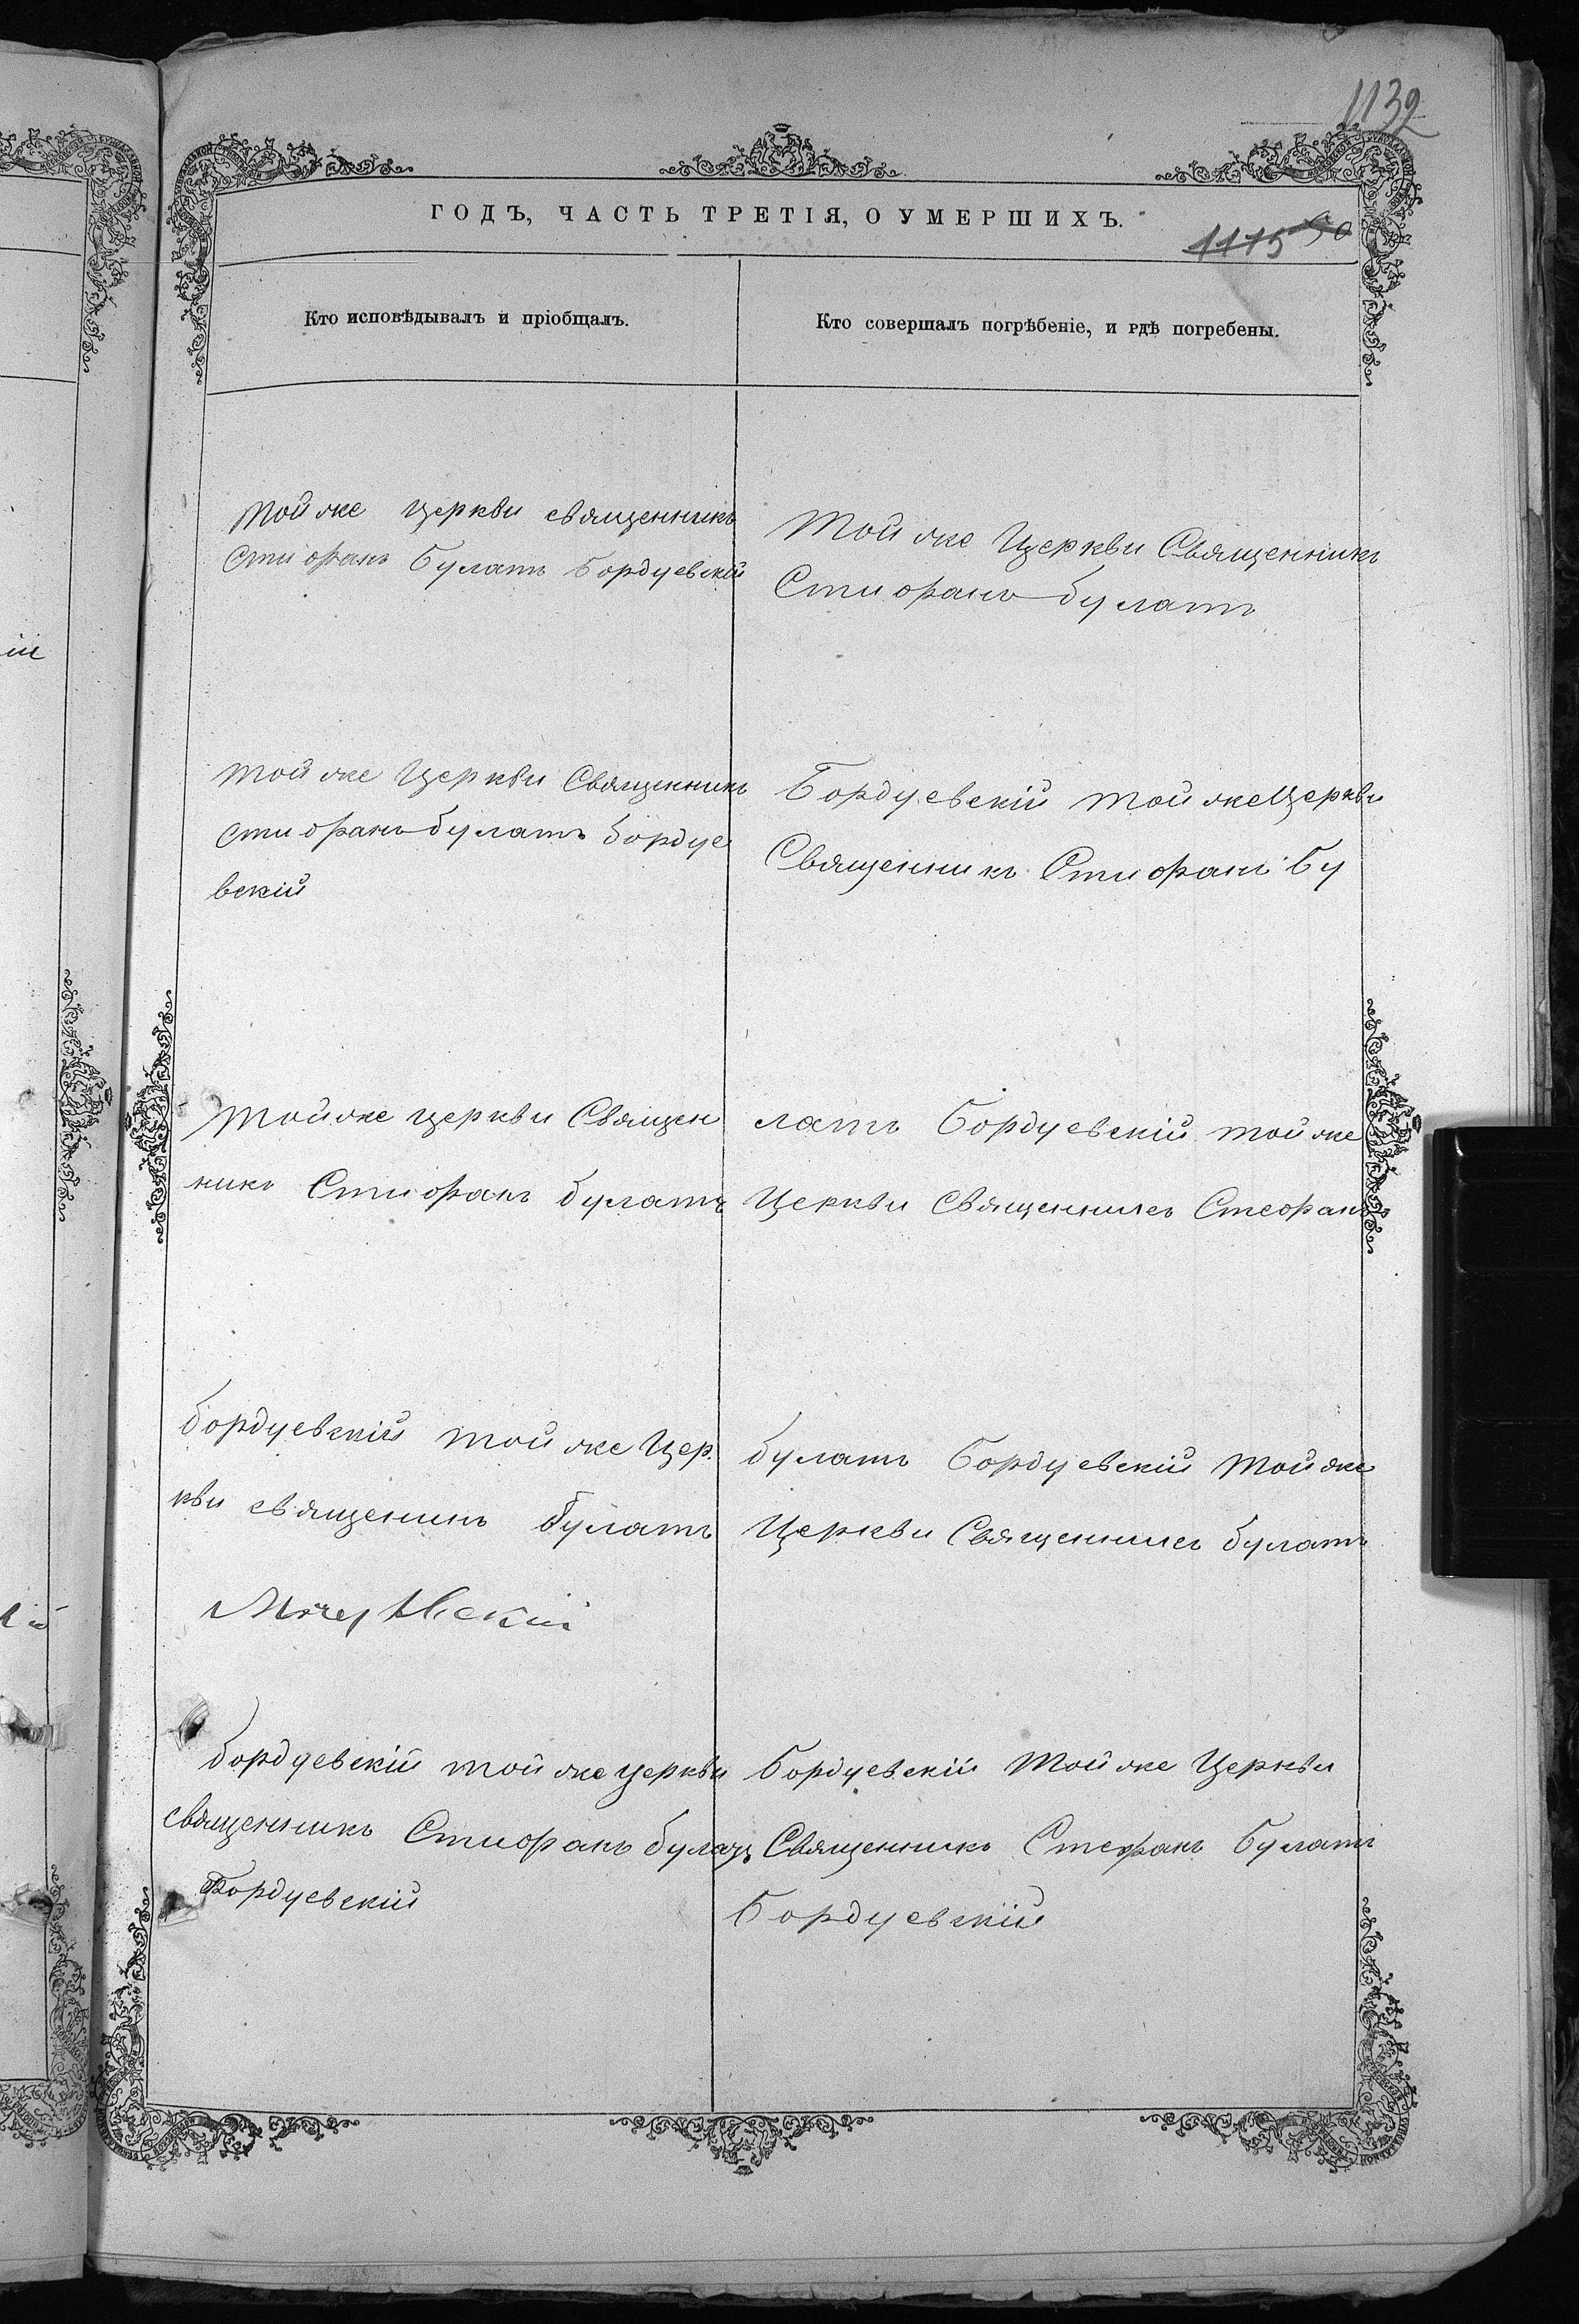 1132
ГОДЪ, ЧАСТЬ ТРЕТІЯ, О УМЕРШИХЪ.
1115
Кто исповѣдывалъ и пріобщалъ.
Кто совершалъ погрѣбеніе, и гдѣ погребены.
той же церкви священникъ
Стиофанъ Булатъ Бордуевскій
Той же Церкви Священникъ
Стиофанъ булатъ
той же Церкви Священникъ
стиофанъ булатъ бордуе
вскій
Бордуевскій той же Церкви
Священникъ Стиофанъ Бу
Той же церкви Священ
никъ Стиофанъ булатъ
латъ Бордуевскій той же
Церкви Священникъ Стеофанъ
бордуевскій той же Цер
кви священикъ Булатъ
булатъ Бордуевскій Той же
Церкви Священникъ булатъ
бордуевскій той же церкви
священникъ Стиофанъ булатъ
Бордуевскій
Бордуевскій Той же Церкви
Священникъ Стефанъ Булатъ
Бордуевскій